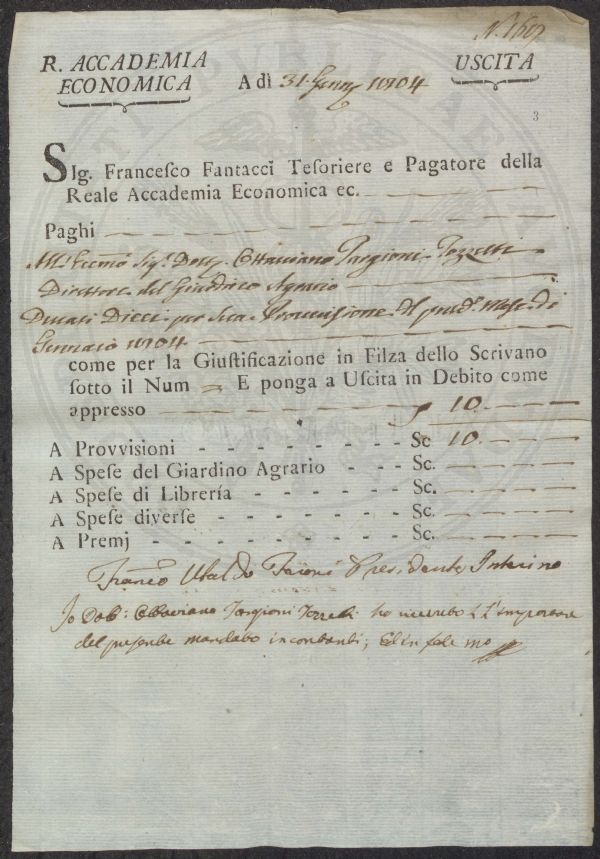 R. ACCADEMIA
ECONOMICA
A dì 31 Genn.º 1804
USCITA
3
SIg. Francesco Fantacci Tesoriere e Pagatore della
Reale Accademia Economica ec.
Paghi
All' Eccmo Sig.r Dott. Ottaviano Targioni Tozzetti
Direttore del Giardino Agrario
Ducati Dieci per sua Provvisione del pred.º mese di
Gennaio 1804
come per la Giustificazione in Filza dello Scrivano
sotto il Num E ponga a Uscita in Debito come
appresso 10.
A Provvisioni Sc 10.
A Spese del Giardino Agrario Sc.
A Spese di Librería Sc.
A Spese diverse Sc.
A Premj Sc.
Franco Ubaldo Presidente Interino
Io Dott: Ottaviano Targioni Tozzetti ho ricevuto l'importare
del presente mandato in contanti; Ed in fede mo